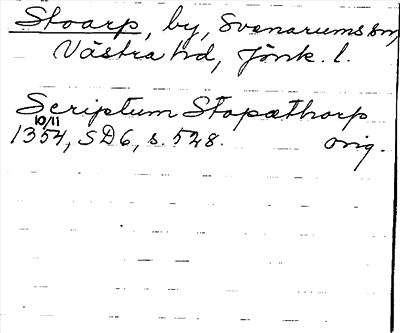 Stoarp, by, Svenarums sn,
Västra hd, Jönk. l.
Scriptum Stopæthorp
10/11
1354, SD6, s. 528. orig.